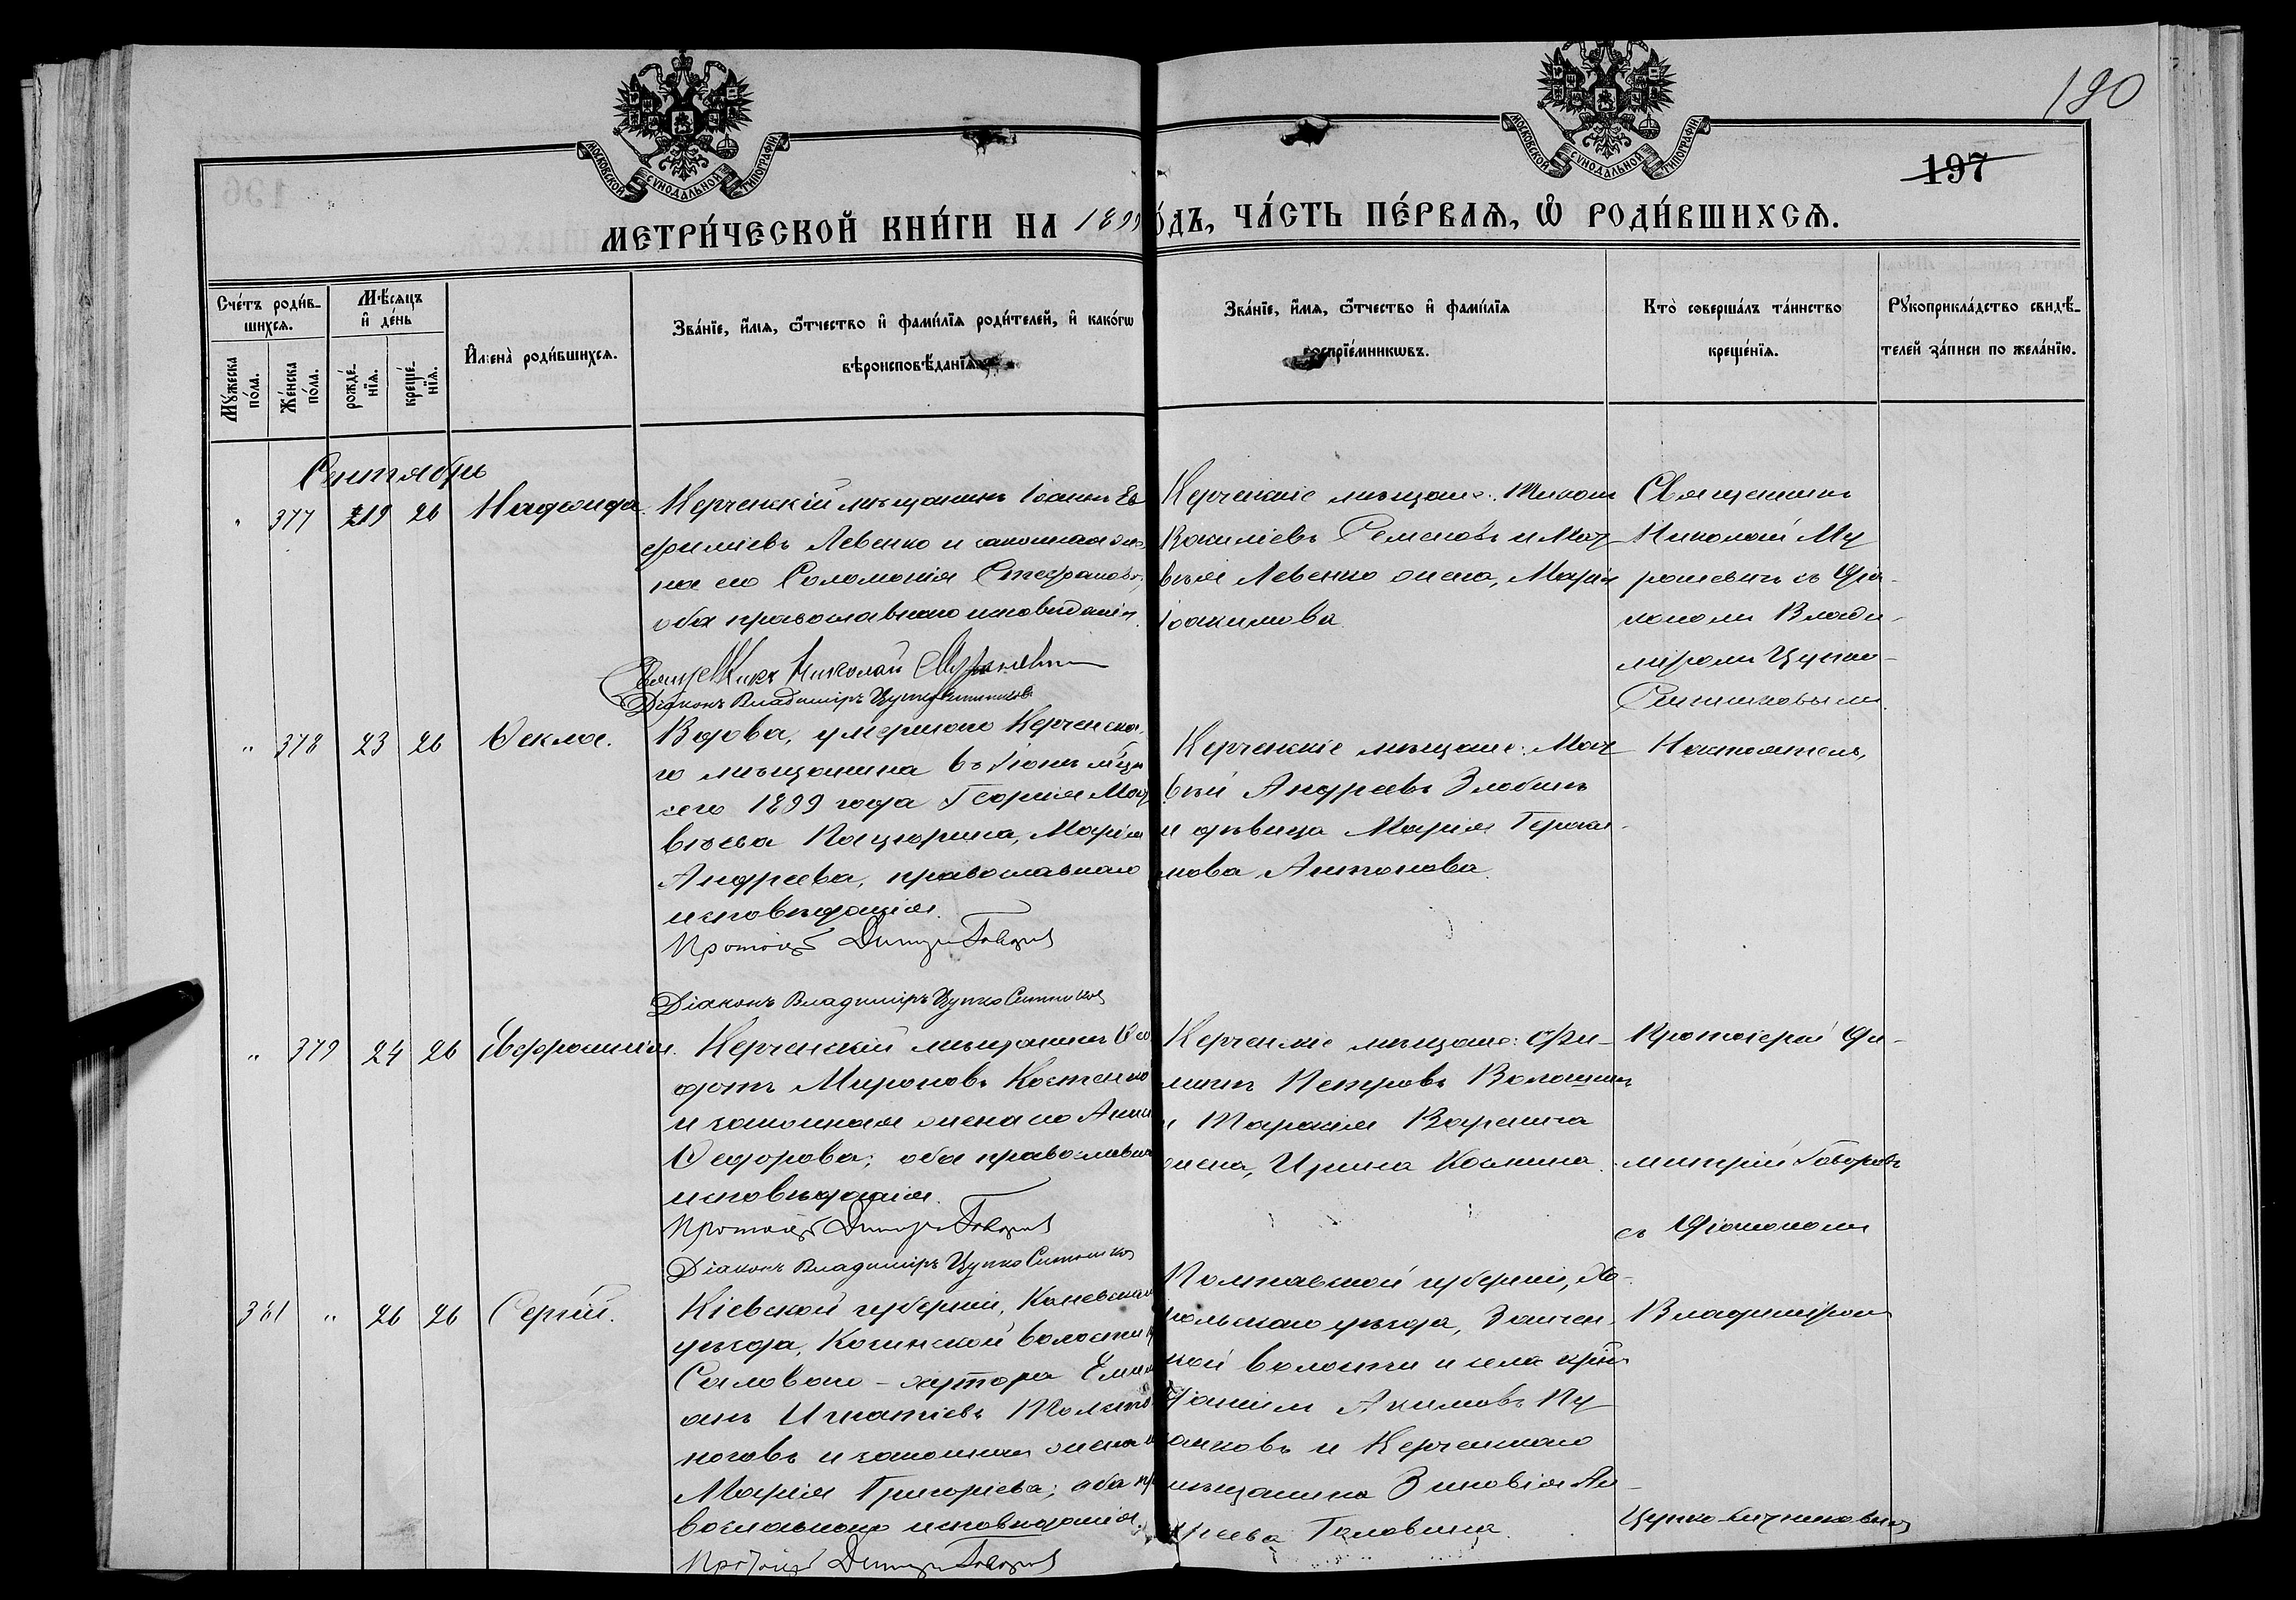 190
197
МОСКОВСКОЙ СѴНОДАЛЬНОЙ ТИПОГРАФІИ
МОСКОВСКОЙ СѴНОДАЛЬНОЙ ТИПОГРАФІИ
МЕТРИ́ЧЕСКОЙ КНИ́ГИ НА 1899 О́ДЪ, ЧА́СТЬ ПЕ́РВАѦ, Ѽ РОДИ́ВШИХСѦ.
Сче́тъ роди́в-
шихсѧ.
Мѣ́сѧцъ
и҆ де́нь
Мꙋ́жеска по́ла.
Же́нска по́ла.
рожде́-
нїѧ.
креще́-
нїѧ.
И҆мена̀ роди́вшихсѧ.
Зва́нїе, и҆́мѧ, ѻ҆́тчество и҆ фами́лїѧ роди́телей, и҆ како́гѡ
вѣроисповѣ́данїѧ
Зва́нїе, и҆́мѧ, ѻ҆́тчество и҆ фами́лїѧ
воспрїе́мникѡвъ.
Кто̀ соверша́лъ та́инство
креще́нїѧ.
Рꙋкоприкла́дство свидѣ́-
телей за́писи по жела́нїю.
Сентябрь
" 377 19 26 Надежда.
Керченскій мѣщанинъ Іоаннъ Ев
фиміевъ Левенко и законная же
на его Соломонія Стефанова,
оба православнаго исповѣданія.
Священникъ Николай
Діаконъ Владиміръ Цупко Ситников
Керченскіе мѣщане:
Василіевъ Семеновъ и Мат
вѣя Левенко жена, Марія
Іоакимова
Священникъ
Николай Му
рашевичъ съ Діа-
кономъ Влади-
міромъ Цупко-
Ситниковымъ.
" 378 23 26 Ѳекла.
Вдова, умершаго Керченска-
го мѣщанина въ Іюнѣ м-цѣ
сего 1899 года Георгія Мат
вѣева Кацюрина, Марія
Андреева, православнаго
исповѣданія.
Протоіер Димитр Говоров
Діаконъ Владиміръ Цупко Ситников
Керченскіе мѣщане: Мат
вѣй Андреевъ Злобинъ
и дѣвица Марія Гераси-
мова Антонова.
Настоятель,
" 379 24 26 Евфросинія.
Керченскій мѣщанинъ Ѳео
дотъ Мироновъ Костенко
и законная жена его Анна
Ѳедорова; оба православнаго
исповѣданія.
Протоіер Димитр Говоров
Діаконъ Владиміръ Цупко Ситников
Керченскіе мѣщане: Фи-
липпъ Петровъ Волошинъ
и Тарасія
жена, Ирина Косьмина.
Протоіерей Ди-
митрій Говоровъ
съ Діакономъ
381 " 26 26 Сергій.
Кіевской губерніи, Каневскаго
уѣзда, Козинской волости
хутора Емели
анъ Игнатіевъ Толсто
ноговъ и законная жена
Марія Григоріева; оба пра
вославнаго исповѣданія.
Протоіер Димитр Говоров
Полтавской губерніи, Хо-
рольскаго уѣзда,
кой волости и села кр-нъ
Акимовъ
и Керченскаго
мѣщанина Зиновія Ан
дреева Головина.
Владиміромъ
Цупко-Ситниковымъ